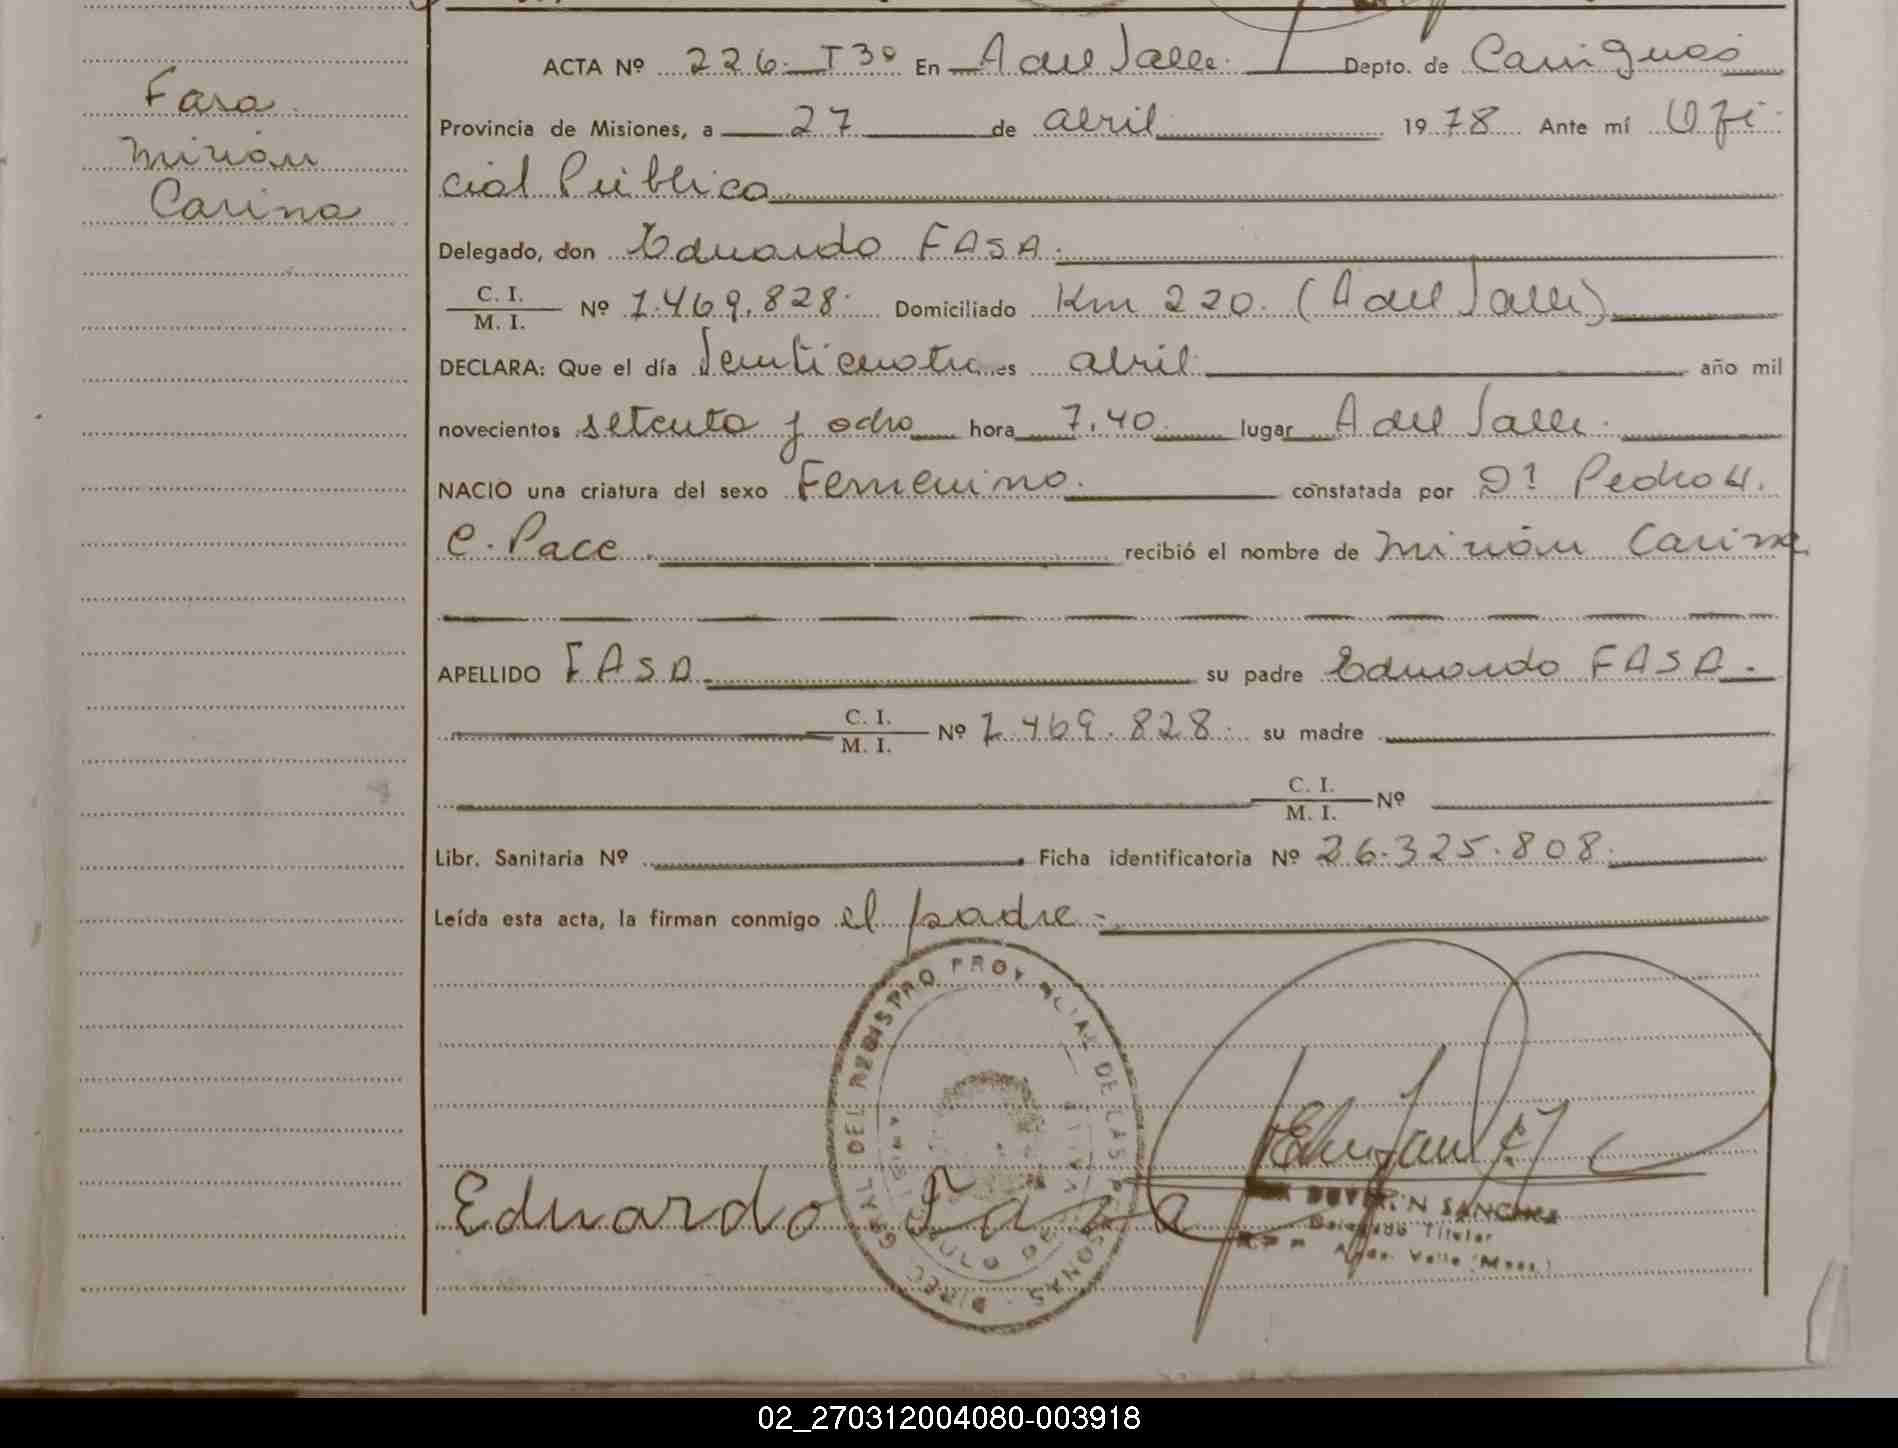 Fasa
Mirián
Carina
ACTA Nº 226. T3º En A del Valle. Depto. de Cainguás
Provincia de Misiones, a 27 de abril 1978 Ante mí Ofi
cial Público
Delegado, don Eduardo FASA.
C. I.
M. I. Nº 7.469.828. Domiciliado Km 220. (A del Valle)
DECLARA: Que el día Veinticuatro es abril año mil
novecientos setenta y ocho hora 7,40 lugar A del Valle.
NACIO una criatura del sexo Femenino. constatada por Dr Pedro H.
C. Pace recibió el nombre de Mirián Carina
APELLIDO FASA su padre Eduardo FASA.
C. I.
M. I. Nº 7.469.828. su madre
C. I.
M. I. Nº
Libr. Sanitaria Nº Ficha identificatoria Nº 26.325.808.
Leída esta acta, la firman conmigo el padre.
DIREC GRAL DEL REGISTRO PROVINCIAL DE LAS PERSONAS
Eduardo Fasa
SANCHEZ
Delegado Titular
Valle (Mnes.)
02_270312004080-003918